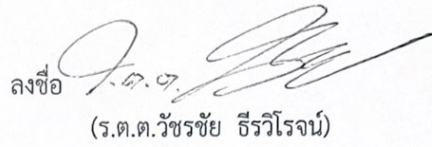 ลงชื่อ ร.ต.ต.
(ร.ต.ต.วัชรชัย ธีรวิโรจน์)